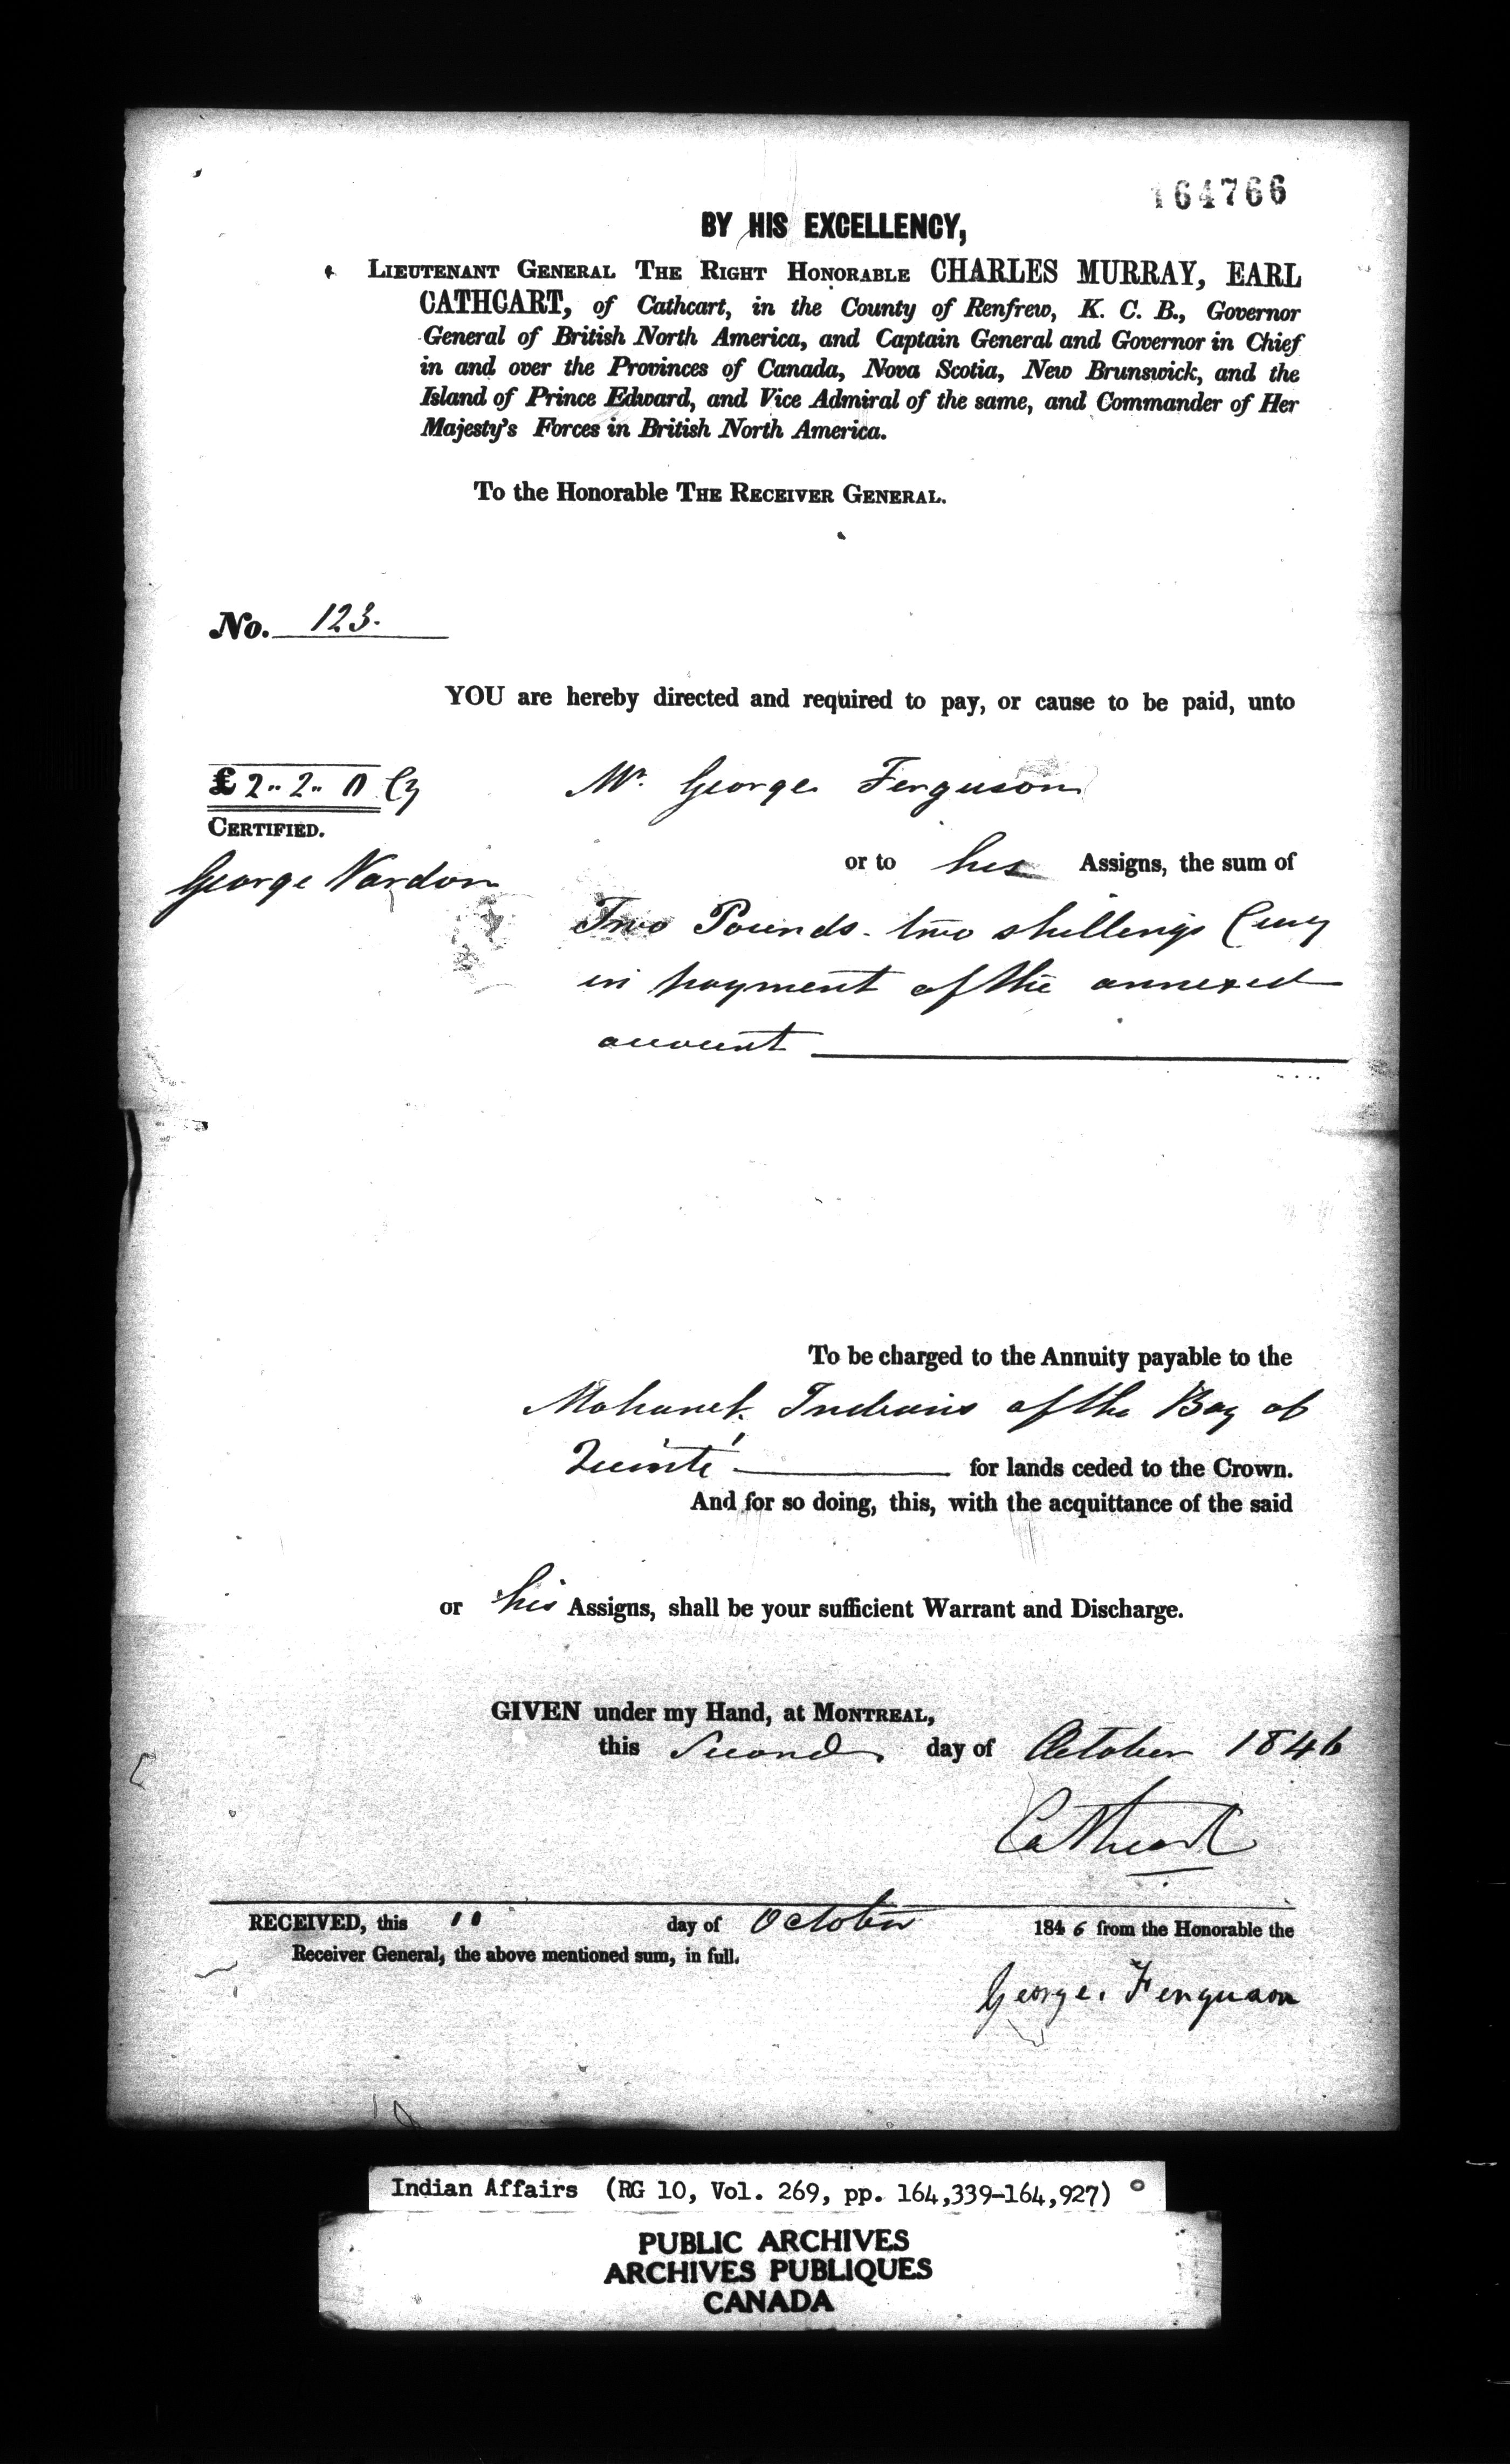 164766
BY HIS EXCELLENCY,
LIEUTENANT GENERAL THE RIGHT HONORABLE CHARLES MURRAY, EARL
CATHCART, of Cathcart, in the County of Renfrew, K. C. B., Governor
General of British North America, and Captain General and Governor in Chief
in and over the Provinces of Canada, Nova Scotia, New Brunswick, and the
Island of Prince Edward, and Vice Admiral of the same, and Commander of Her
Majesty's Forces in British North America.
To the Honorable THE RECEIVER GENERAL.
No. 123.
YOU are hereby directed and required to pay, or cause to be paid, unto
£2.. 2.. 0 Cy
Mr. George Ferguson
CERTIFIED.
George Vardon
or to his Assigns, the sum of
Two Pounds. two shillings Curcy
in payment of the annexed
account
To be charged to the Annuity payable to the
Mohawk Indians of the Bay of
Quinté for lands ceded to the Crown.
And for so doing, this, with the acquittance of the said
or his Assigns, shall be your sufficient Warrant and Discharge.
GIVEN under my Hand, at MONTREAL,
this Second day of October 1846
Cathcart
RECEIVED, this 10 day of October 1846 from the Honorable the
Receiver General, the above mentioned sum, in full.
George. Ferguson
Indian Affairs (RG 10, Vol. 269, pp. 164,339-164,927)
PUBLIC ARCHIVES
ARCHIVES PUBLIQUES
CANADA